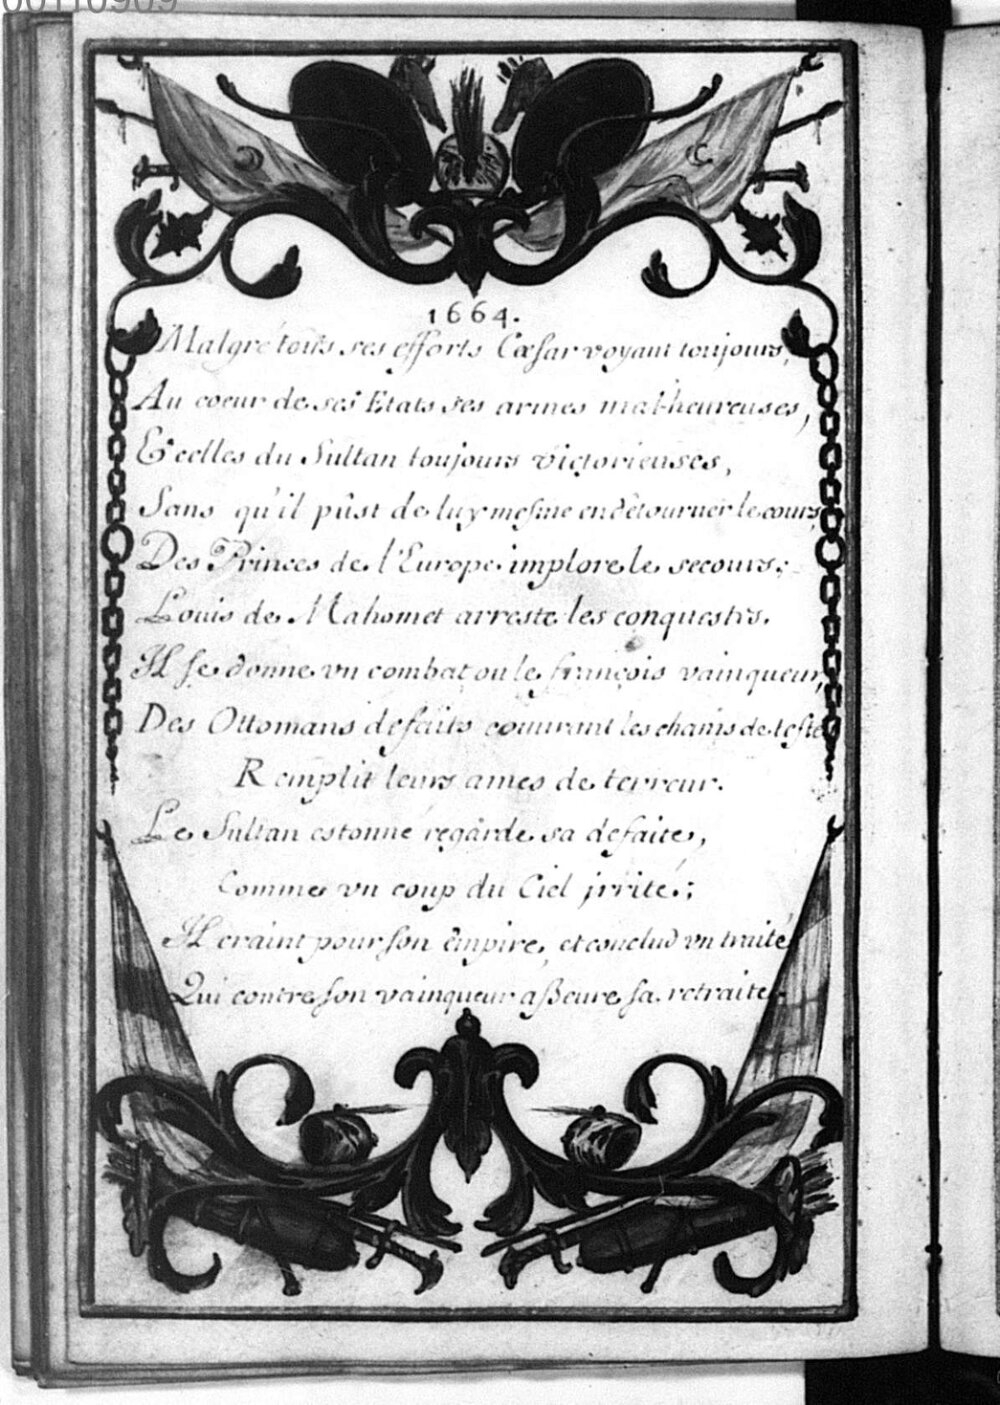 00110909
1664.
Malgré touts ses efforts Cæsar voyant toujours,
Au coeur de ses Etats ses armes mal-heureuses,
Et celles du Sultan toujours victorieuses,
Sans qu'il pûst de luy mesme en détourner le cours,
Des Princes de l'Europe implore le secours;
Louis de Mahomet arreste les conquestes.
Il se donne vn combat ou le françois vainqueur,
Des Ottomans defaits couurant les chams de teste
Remplit leurs ames de terreur.
Le Sultan estonné regarde sa defaite,
Comme vn coup du Ciel jrrité;
Il craint pour son empire, et conclud vn traité
Qui contre son vainqueur aßeure sa retraite.